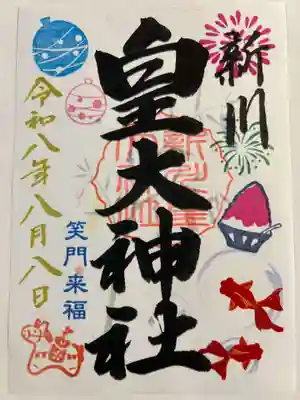 新川
皇大神社
笑門来福
令和八年八月八日